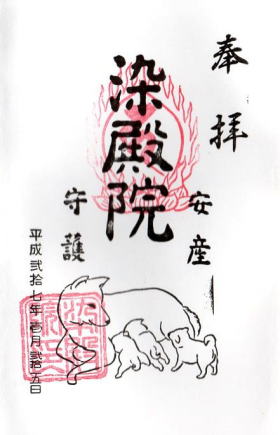 奉拝
安産
染殿院
守護
平成弐拾七年壱月弐拾五日